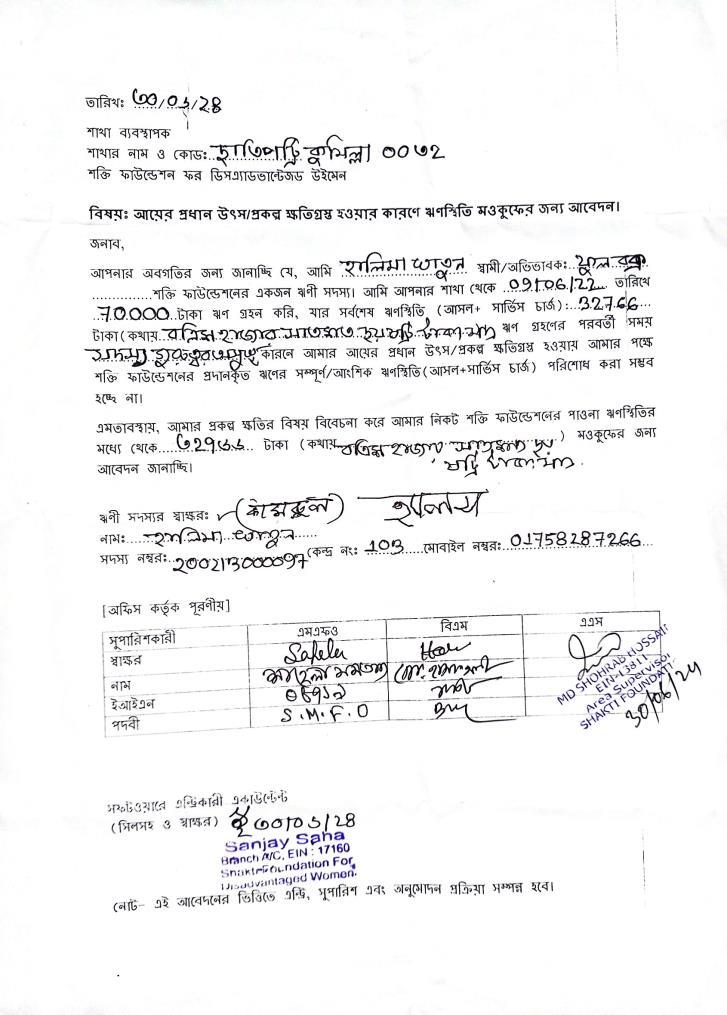 তারিখঃ ৩০/০৬/২৪
শাখা ব্যবস্থাপক
শাখার নাম ও কোডঃ ছাতিপট্টি কুমিল্লা 0072
শক্তি ফাউন্ডেশন ফর ডিসএ্যাডভান্টেজড উইমেন
বিষয়ঃ আয়ের প্রধান উৎস/প্রকল্প ক্ষতিগ্রস্থ হওয়ার কারণে ঋণস্থিতি মওকুফের জন্য আবেদন।
জনাব,
আপনার অবগতির জন্য জানাচ্ছি যে, আমি হালিমা খাতুন স্বামী/অভিভাবকঃ ফুল
শক্তি ফাউন্ডেশনের একজন ঋণী সদস্য। আমি আপনার শাখা থেকে 09/06/22 তারিখে
70.000 টাকা ঋণ গ্রহন করি, যার সর্বশেষ ঋণস্থিতি (আসল+ সার্ভিস চার্জ)ঃ 32766
টাকা(কথায় বত্রিশ হাজার সাতশত ছয়ষট্টি টাকা মাত্র ঋণ গ্রহণের পরবর্তী সময়
সদস্য কারনে আমার আয়ের প্রধান উৎস/প্রকল্প ক্ষতিগ্রস্থ হওয়ায় আমার পক্ষে
শক্তি ফাউন্ডেশনের প্রদানকৃত ঋণের সম্পূর্ণ/আংশিক ঋণস্থিতি(আসল+সার্ভিস চার্জ) পরিশোধ করা সম্ভব
হচ্ছে না।
এমতাবস্থায়, আমার প্রকল্প ক্ষতির বিষয় বিবেচনা করে আমার নিকট শক্তি ফাউন্ডেশনের পাওনা ঋণস্থিতির
মধ্যে থেকে ৩২৭৬৬ টাকা (কথায় বত্রিশ হাজার সাতশত ছয়) মওকুফের জন্য
আবেদন জানাচ্ছি। ষট্টি টাকা মাত্র
ঋণী সদস্যের স্বাক্ষরঃ
নামঃ হালিমা খাতুন
সদস্য নম্বরঃ 200213000097 (কেন্দ্র নংঃ 103 মোবাইল নম্বরঃ 01758287266
[অফিস কর্তৃক পূরণীয়]
সুপারিশকারী এমএফও বিএম এএস
স্বাক্ষর
নাম
ইআইএন
পদবী S.M.F.O BM
MD SHOHRAB HOSSAI
EIN-13811
Area Supervisor
SHAKTI FOUNDATI
30/06/24
সফটওয়ারে এন্ট্রিকারী একাউন্টেন্ট
(সিলসহ ও স্বাক্ষর) ৩০/০৬/২৪
Sanjay Saha
Branch A/C, EIN : 17160
Shakti Foundation For
Disadvantaged Women.
(নোট- এই আবেদনের ভিত্তিতে এন্ট্রি, সুপারিশ এবং অনুমোদন প্রক্রিয়া সম্পন্ন হবে।